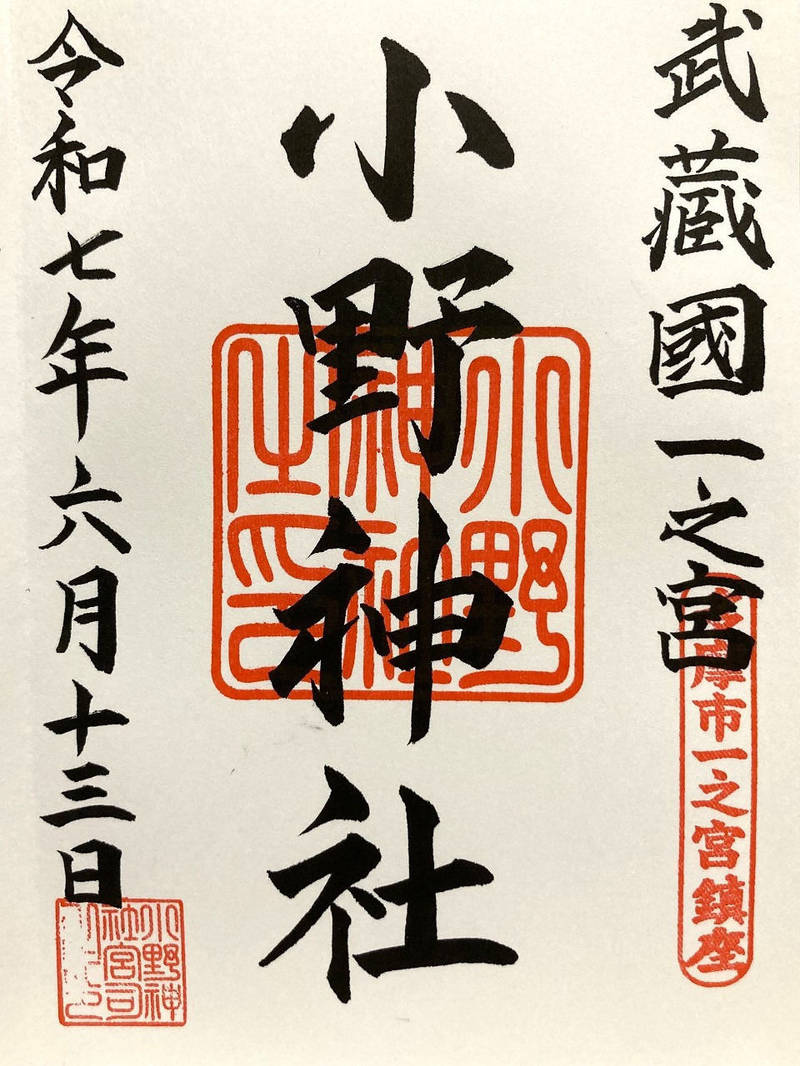 武藏國一之宮
多摩市一之宮鎮座
小野神社
小野
神社
之印
令和七年六月十三日
小野神
社宮司